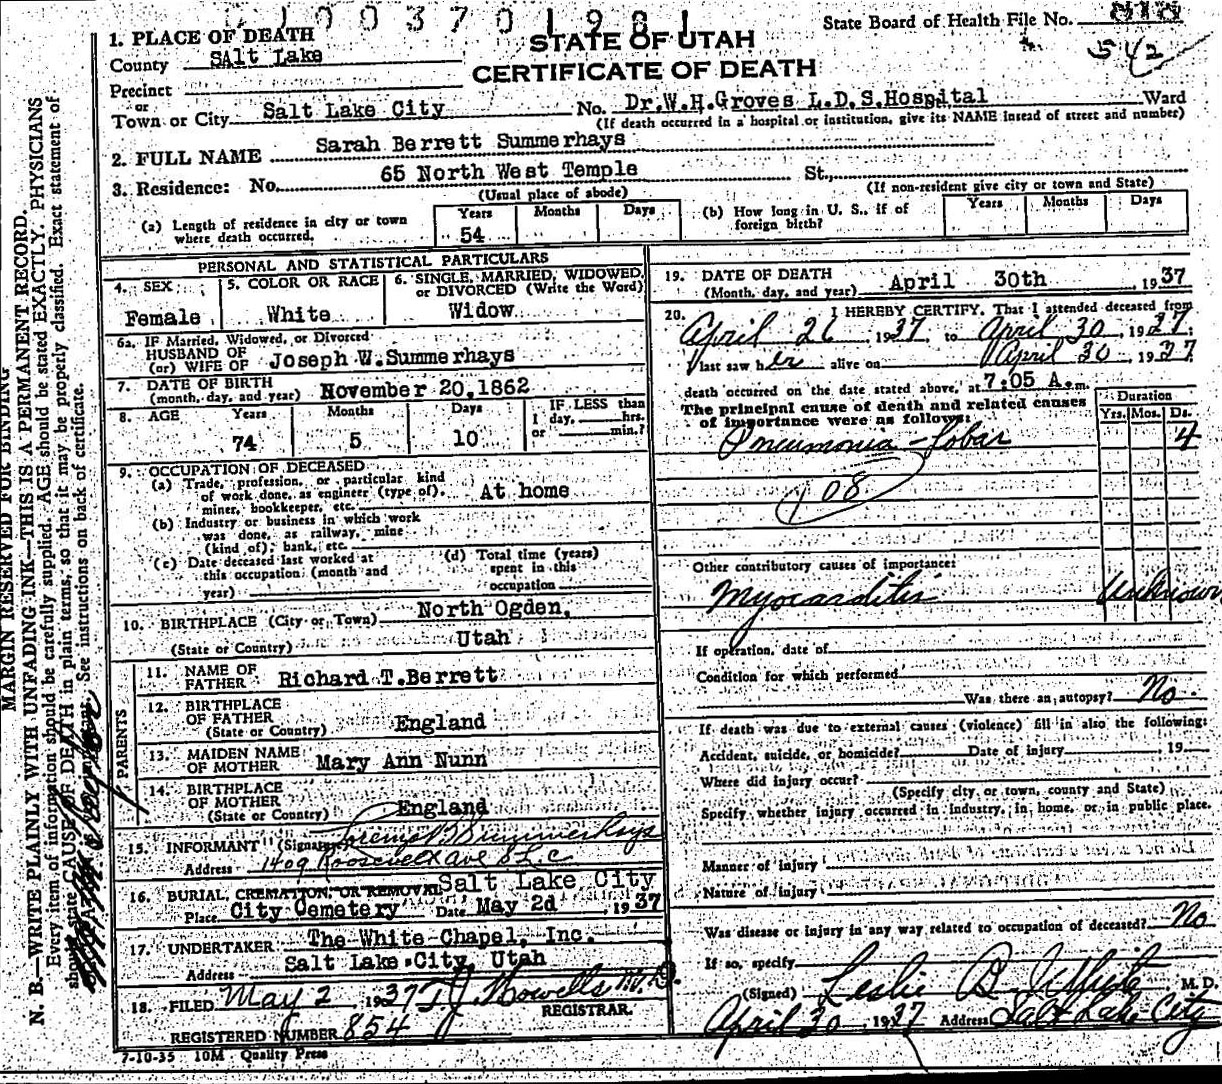 1003701981
State Board of Health File No. 818
542
STATE OF UTAH
CERTIFICATE OF DEATH
1. PLACE OF DEATH
County SAlt Lake
Precinct
or
Town or City Salt Lake City No. Dr.W.H.Groves L.D.S.Hospital Ward
(If death occurred in a hospital or institution, give its NAME insead of street and number)
2. FULL NAME Sarah Berrett Summerhays
3. Residence: No. 65 North West Temple St.,
(Usual place of abode) (If non-resident give city or town and State)
(a) Length of residence in city or town where death occurred. Years 54 Months Days
(b) How long in U. S., if of foreign birth? Years Months Days
PERSONAL AND STATISTICAL PARTICULARS
4. SEX Female
5. COLOR OR RACE White
6. SINGLE, MARRIED, WIDOWED, or DIVORCED (Write the Word) Widow
6a. IF Married, Widowed, or Divorced
HUSBAND OF
(or) WIFE OF Joseph W.Summerhays
7. DATE OF BIRTH
(month, day, and year) November 20,1862
8. AGE Years 74 Months 5 Days 10
IF LESS than
1 day, hrs.
or min.?
9. OCCUPATION OF DECEASED
(a) Trade, profession, or particular kind
of work done, as engineer (type of), At home
miner, bookkeeper, etc.
(b) Industry or business in which work
was done, as railway, mine
(kind of), bank, etc.
(c) Date deceased last worked at
this occupation (month and
year)
(d) Total time (years)
spent in this
occupation
10. BIRTHPLACE (City or Town) North Ogden,
(State or Country) Utah
PARENTS
11. NAME OF
FATHER Richard T.Berrett
12. BIRTHPLACE
OF FATHER England
(State or Country)
13. MAIDEN NAME
OF MOTHER Mary Ann Nunn
14. BIRTHPLACE
OF MOTHER
(State or Country) England
15. INFORMANT (Signature) Summerhays
Address 1409 Roosevelt Ave S L C
16. BURIAL, CREMATION, OR REMOVAL Salt Lake City
Place City Cemetery Date May 2d, 1937
17. UNDERTAKER The White Chapel, Inc.
Address Salt Lake City, Utah
18. FILED May 2, 1937 T J Howells M.D.
REGISTRAR.
REGISTERED NUMBER 854
7-10-35 10M Quality Press
19. DATE OF DEATH
(Month, day, and year) April 30th, 1937
20. I HEREBY CERTIFY, That I attended deceased from
April 26 1937, to April 30, 1937,
I last saw her alive on April 30, 1937
death occurred on the date stated above, at 7:05 A.m.
The principal cause of death and related causes
of importance were as follows:
Duration
Yrs. Mos. Ds.
Pneumonia - Lobar 4
108
Other contributory causes of importance:
Myocarditis Unknown
If operation, date of
Condition for which performed
Was there an autopsy? No.
If death was due to external causes (violence) fill in also the following:
Accident, suicide, or homicide? Date of injury 19
Where did injury occur?
(Specify city, or town, county and State)
Specify whether injury occurred in industry, in home, or in public place.
Manner of injury
Nature of injury
Was disease or injury in any way related to occupation of deceased? No
If so, specify
(Signed) Leslie B. White M. D.
April 30, 1937 Address Salt Lake City
MARGIN RESERVED FOR BINDING
N. B.—WRITE PLAINLY WITH UNFADING INK—THIS IS A PERMANENT RECORD.
Every item of information should be carefully supplied. AGE should be stated EXACTLY. PHYSICIANS
should state CAUSE OF DEATH in plain terms, so that it may be properly classified. Exact statement of
See instructions on back of certificate.